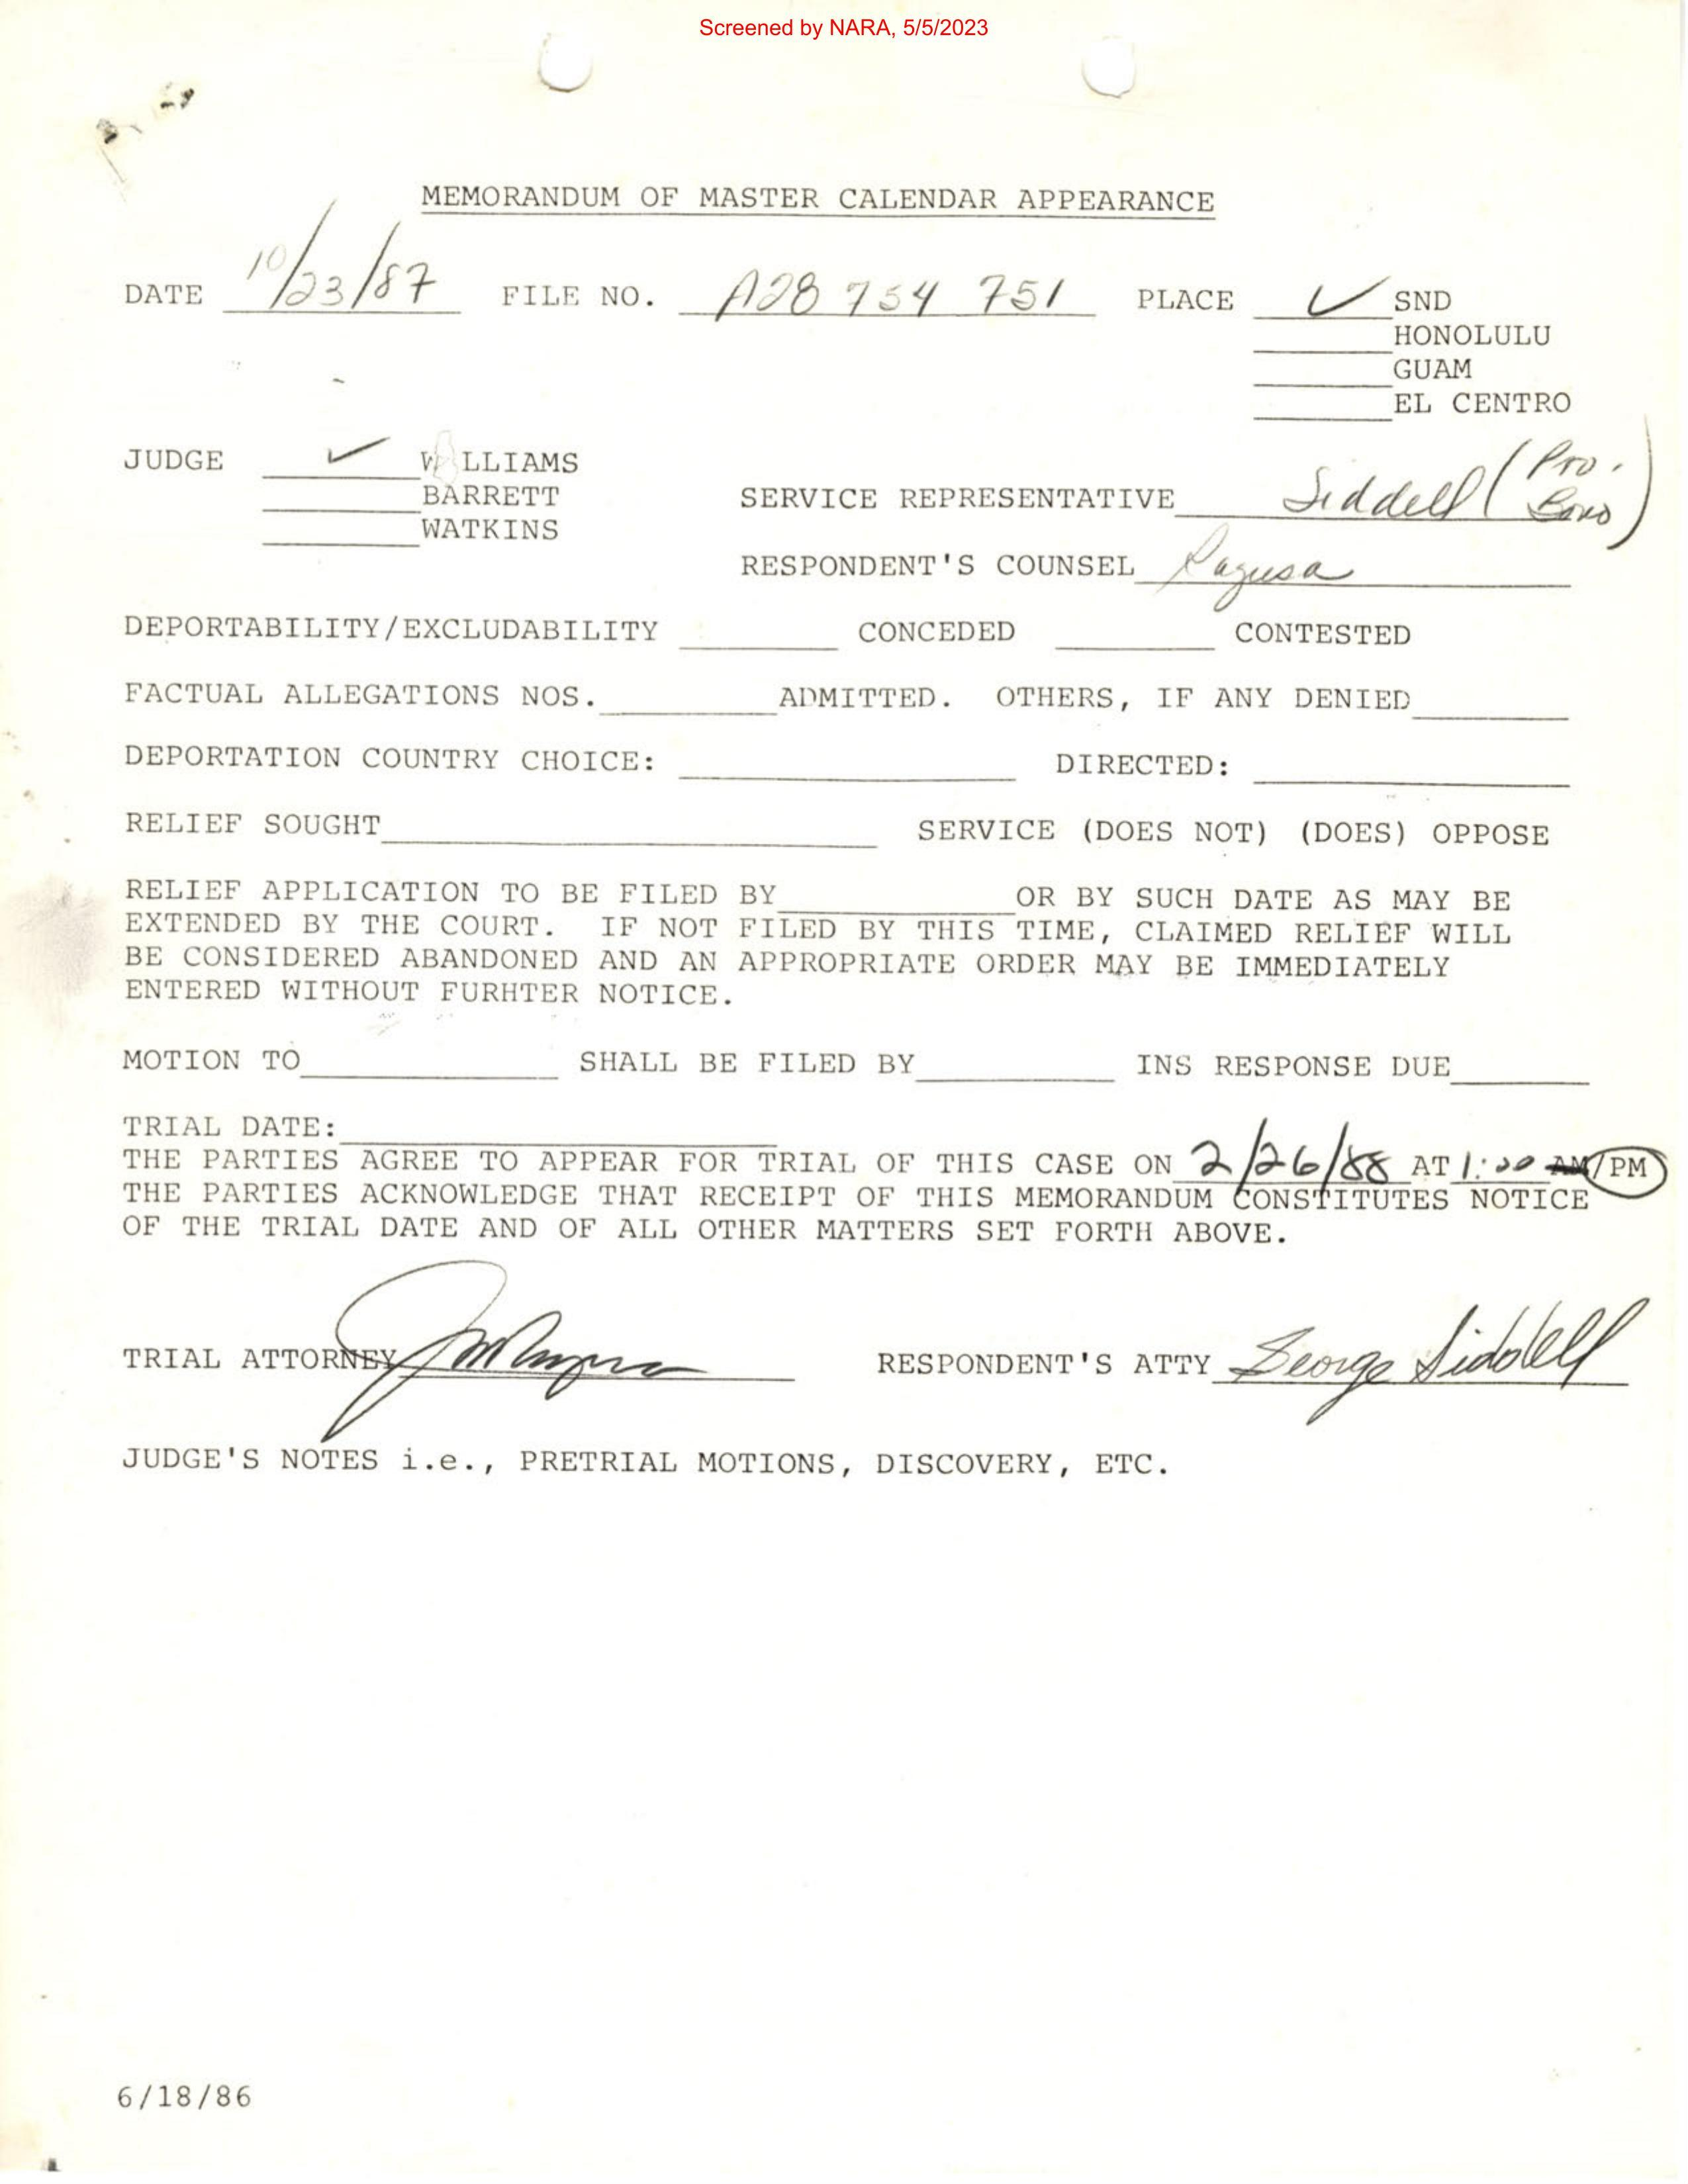 Screened by NARA, 5/5/2023
MEMORANDUM OF MASTER CALENDAR APPEARANCE
DATE 10/23/87 FILE NO. A28 754 751 PLACE ✓ SND
HONOLULU
GUAM
EL CENTRO
JUDGE ✓ W LLIAMS
BARRETT
WATKINS
SERVICE REPRESENTATIVE Siddell (Pro. Bono)
RESPONDENT'S COUNSEL Ragusa
DEPORTABILITY/EXCLUDABILITY CONCEDED CONTESTED
FACTUAL ALLEGATIONS NOS. ADMITTED. OTHERS, IF ANY DENIED
DEPORTATION COUNTRY CHOICE: DIRECTED:
RELIEF SOUGHT SERVICE (DOES NOT) (DOES) OPPOSE
RELIEF APPLICATION TO BE FILED BY OR BY SUCH DATE AS MAY BE
EXTENDED BY THE COURT. IF NOT FILED BY THIS TIME, CLAIMED RELIEF WILL
BE CONSIDERED ABANDONED AND AN APPROPRIATE ORDER MAY BE IMMEDIATELY
ENTERED WITHOUT FURHTER NOTICE.
MOTION TO SHALL BE FILED BY INS RESPONSE DUE
TRIAL DATE:
THE PARTIES AGREE TO APPEAR FOR TRIAL OF THIS CASE ON 2/26/88 AT 1:00 AM/PM
THE PARTIES ACKNOWLEDGE THAT RECEIPT OF THIS MEMORANDUM CONSTITUTES NOTICE
OF THE TRIAL DATE AND OF ALL OTHER MATTERS SET FORTH ABOVE.
TRIAL ATTORNEY RESPONDENT'S ATTY George Siddell
JUDGE'S NOTES i.e., PRETRIAL MOTIONS, DISCOVERY, ETC.
6/18/86